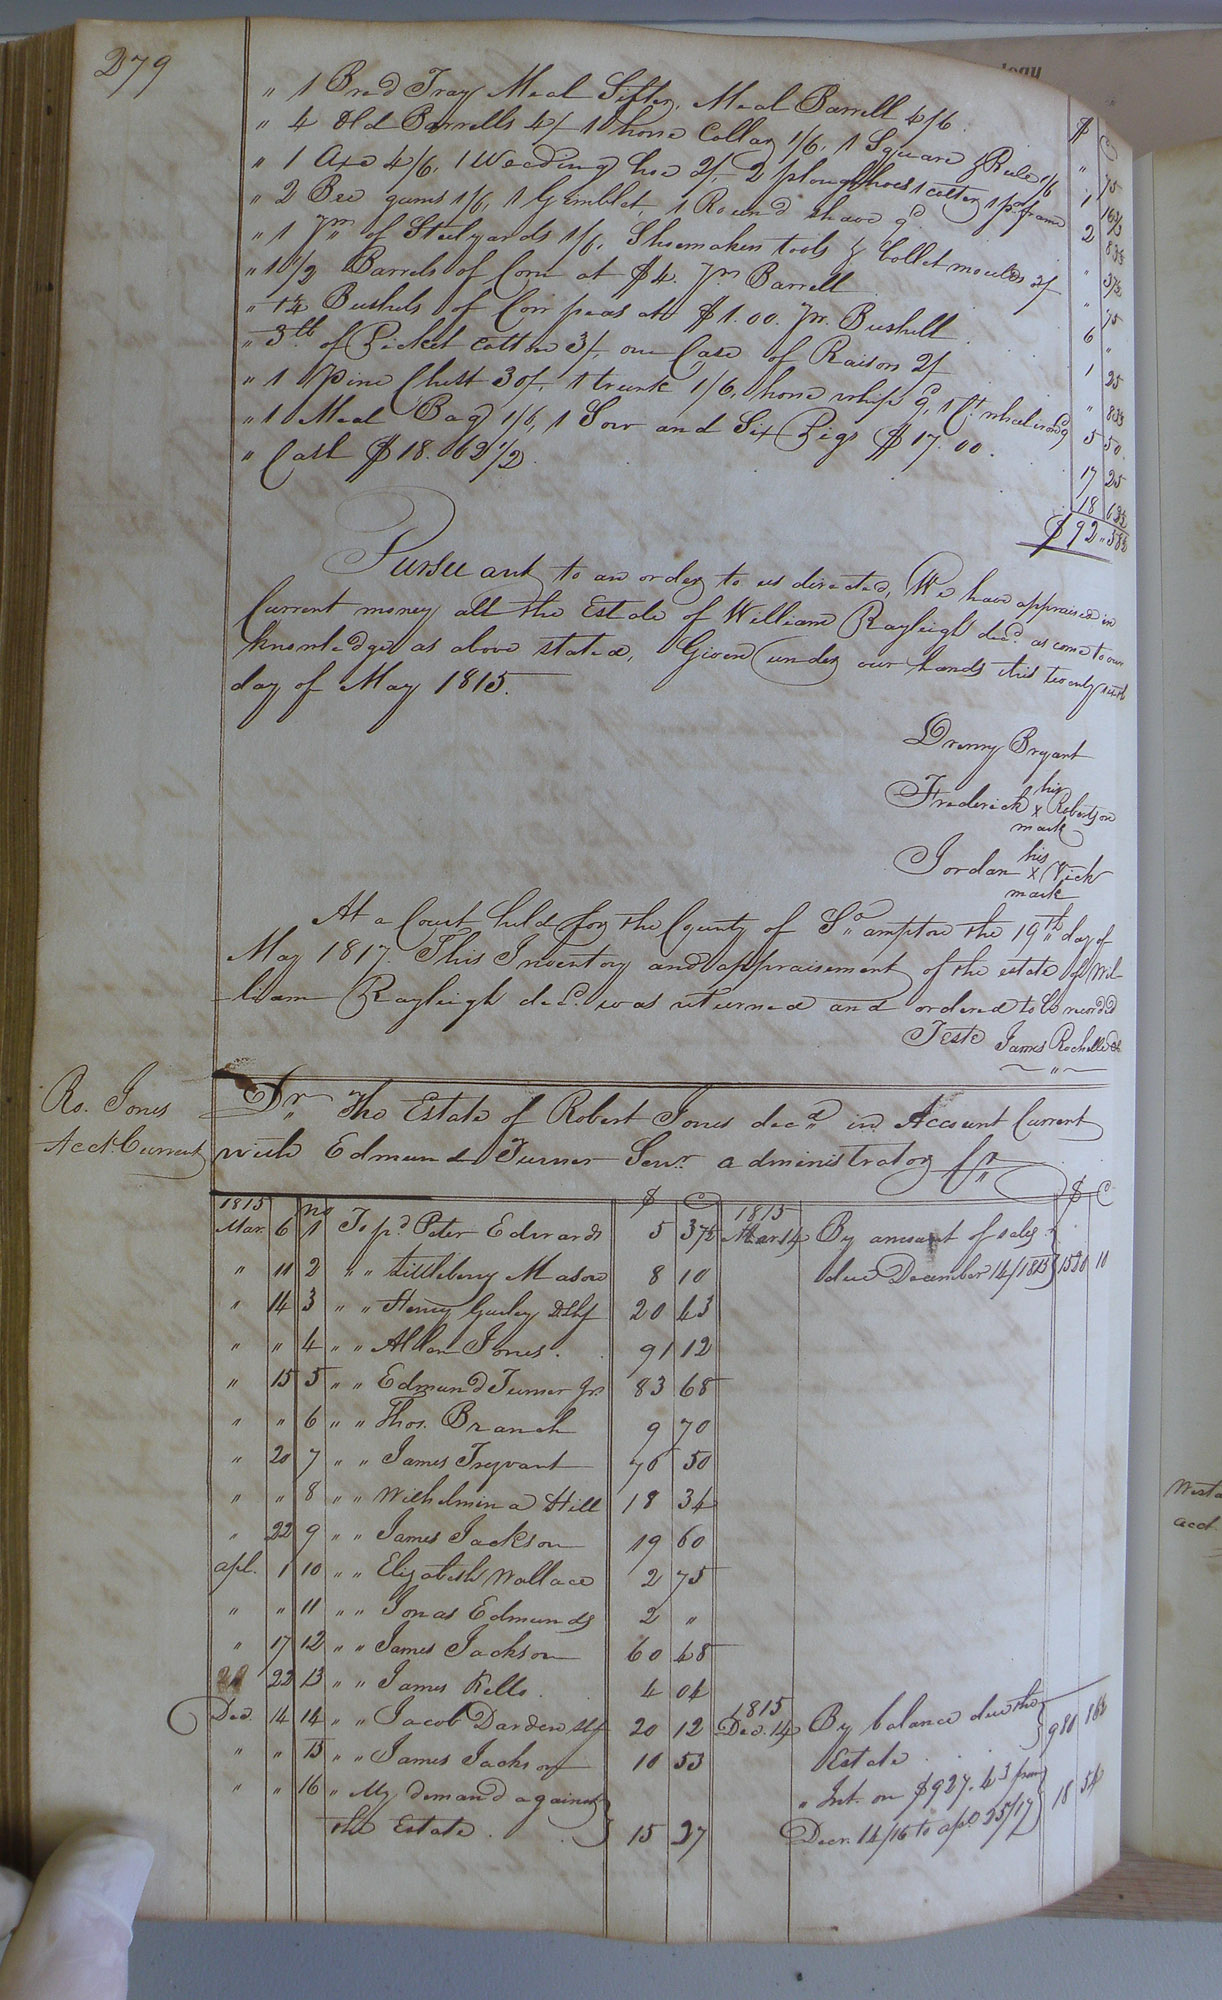 279
logy
$ C
" 1 Bread Tray Meal Sifter, Meal Barrell 4/6 " 75
" 4 Old Barrells 4/ 1 horse Collar 1/6, 1 Square & Rule 1/6 1 16 2/3
" 1 Axe 4/6, 1 Weeding hoe 2/, 2 plough hoes 1 colter 1 pr frame 2 83 1/3
" 2 Bee gums 1/6, 1 Gimblet, 1 Round shave 9d " 37 1/2
" 1 pr of Steelyards 1/6, Shoemakers tools & bullet moulds 2/ " 75
" 1 1/2 Barrels of Corn at $4. pr. Barrell 6 "
" 1 1/4 Bushels of Corn peas at $1.00. pr. Bushell 1 25
" 3 lb of Picket cotton 3/, one Case of Raisors 2/ " 83 1/3
" 1 Pine Chest 30/, 1 trunk 1/6, horse whip 9d, 1 Ct. wheel 5 50
" 1 Meal Bag 1/6, 1 Sow and Six Pigs $17.00. 17 25
" Cash $18.63 1/2 18 63 1/2
$92..58 1/2
Pursuant to an order to us directed, We have appraised in
Current money all the Estate of William Rayleigh decd. as come to our
knowledge as above stated, Given under our hands this twenty sixth
day of May 1815.
Drewry Bryant
Frederick his x mark Robertson
Jordan his x mark Vick
At a Court held for the County of So. ampton the 19th day of
May 1817. This Inventory and appraisement of the estate of Wil-
-liam Rayleigh decd. was returned and ordered to be recorded
Teste James Rochelle Ck
Ro. Jones
Acct. Current
Dr. The Estate of Robert Jones decd. in Account Current
with Edmund Turner Senr. administrator Cr.
1815 no $ C 1815 $ C
Mar. 6 1 To pd. Peter Edwards 5 37 1/2 Mar 14 By amount of sales
" 11 2 " " Littleberry Mason 8 10 due December 14/1815 1520 10
" 14 3 " " Henry Gurley D Shf 20 43
" " 4 " " Allen Jones. 91 12
" 15 5 " " Edmund Turner Jr. 83 68
" " 6 " " Thos. Branch 9 70
" 20 7 " " James Trezvant 76 50
" " 8 " " Wilhelmina Hill 18 34
" 22 9 " " James Jackson 19 60
apl. 1 10 " " Elizabeth Wallace 2 75
" " 11 " " Jonas Edmunds 2 "
" 17 12 " " James Jackson 60 48
22 13 " " James Kello. 4 04
Dec. 14 14 " " Jacob Darden Shf 20 12 1815 Dec. 14 By balance due the
" " 15 " " James Jackson 10 53 Estate 980
" " 16 " My demand against " Int. on $927.43 from
the Estate 15 27 Decr. 14/16 to apl. 25/17 18 54